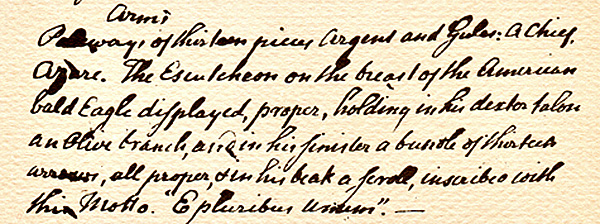 Arms
Paleways of thirteen pieces Argent and Gules: A Chief,
Azure. The Escutcheon on the breast of the American
bald Eagle displayed, proper, holding in his dexter talon
an Olive branch, and in his sinister a bundle of thirteen
arrows, all proper, & in his beak a scroll, inscribed with
this Motto. "E pluribus unum".—